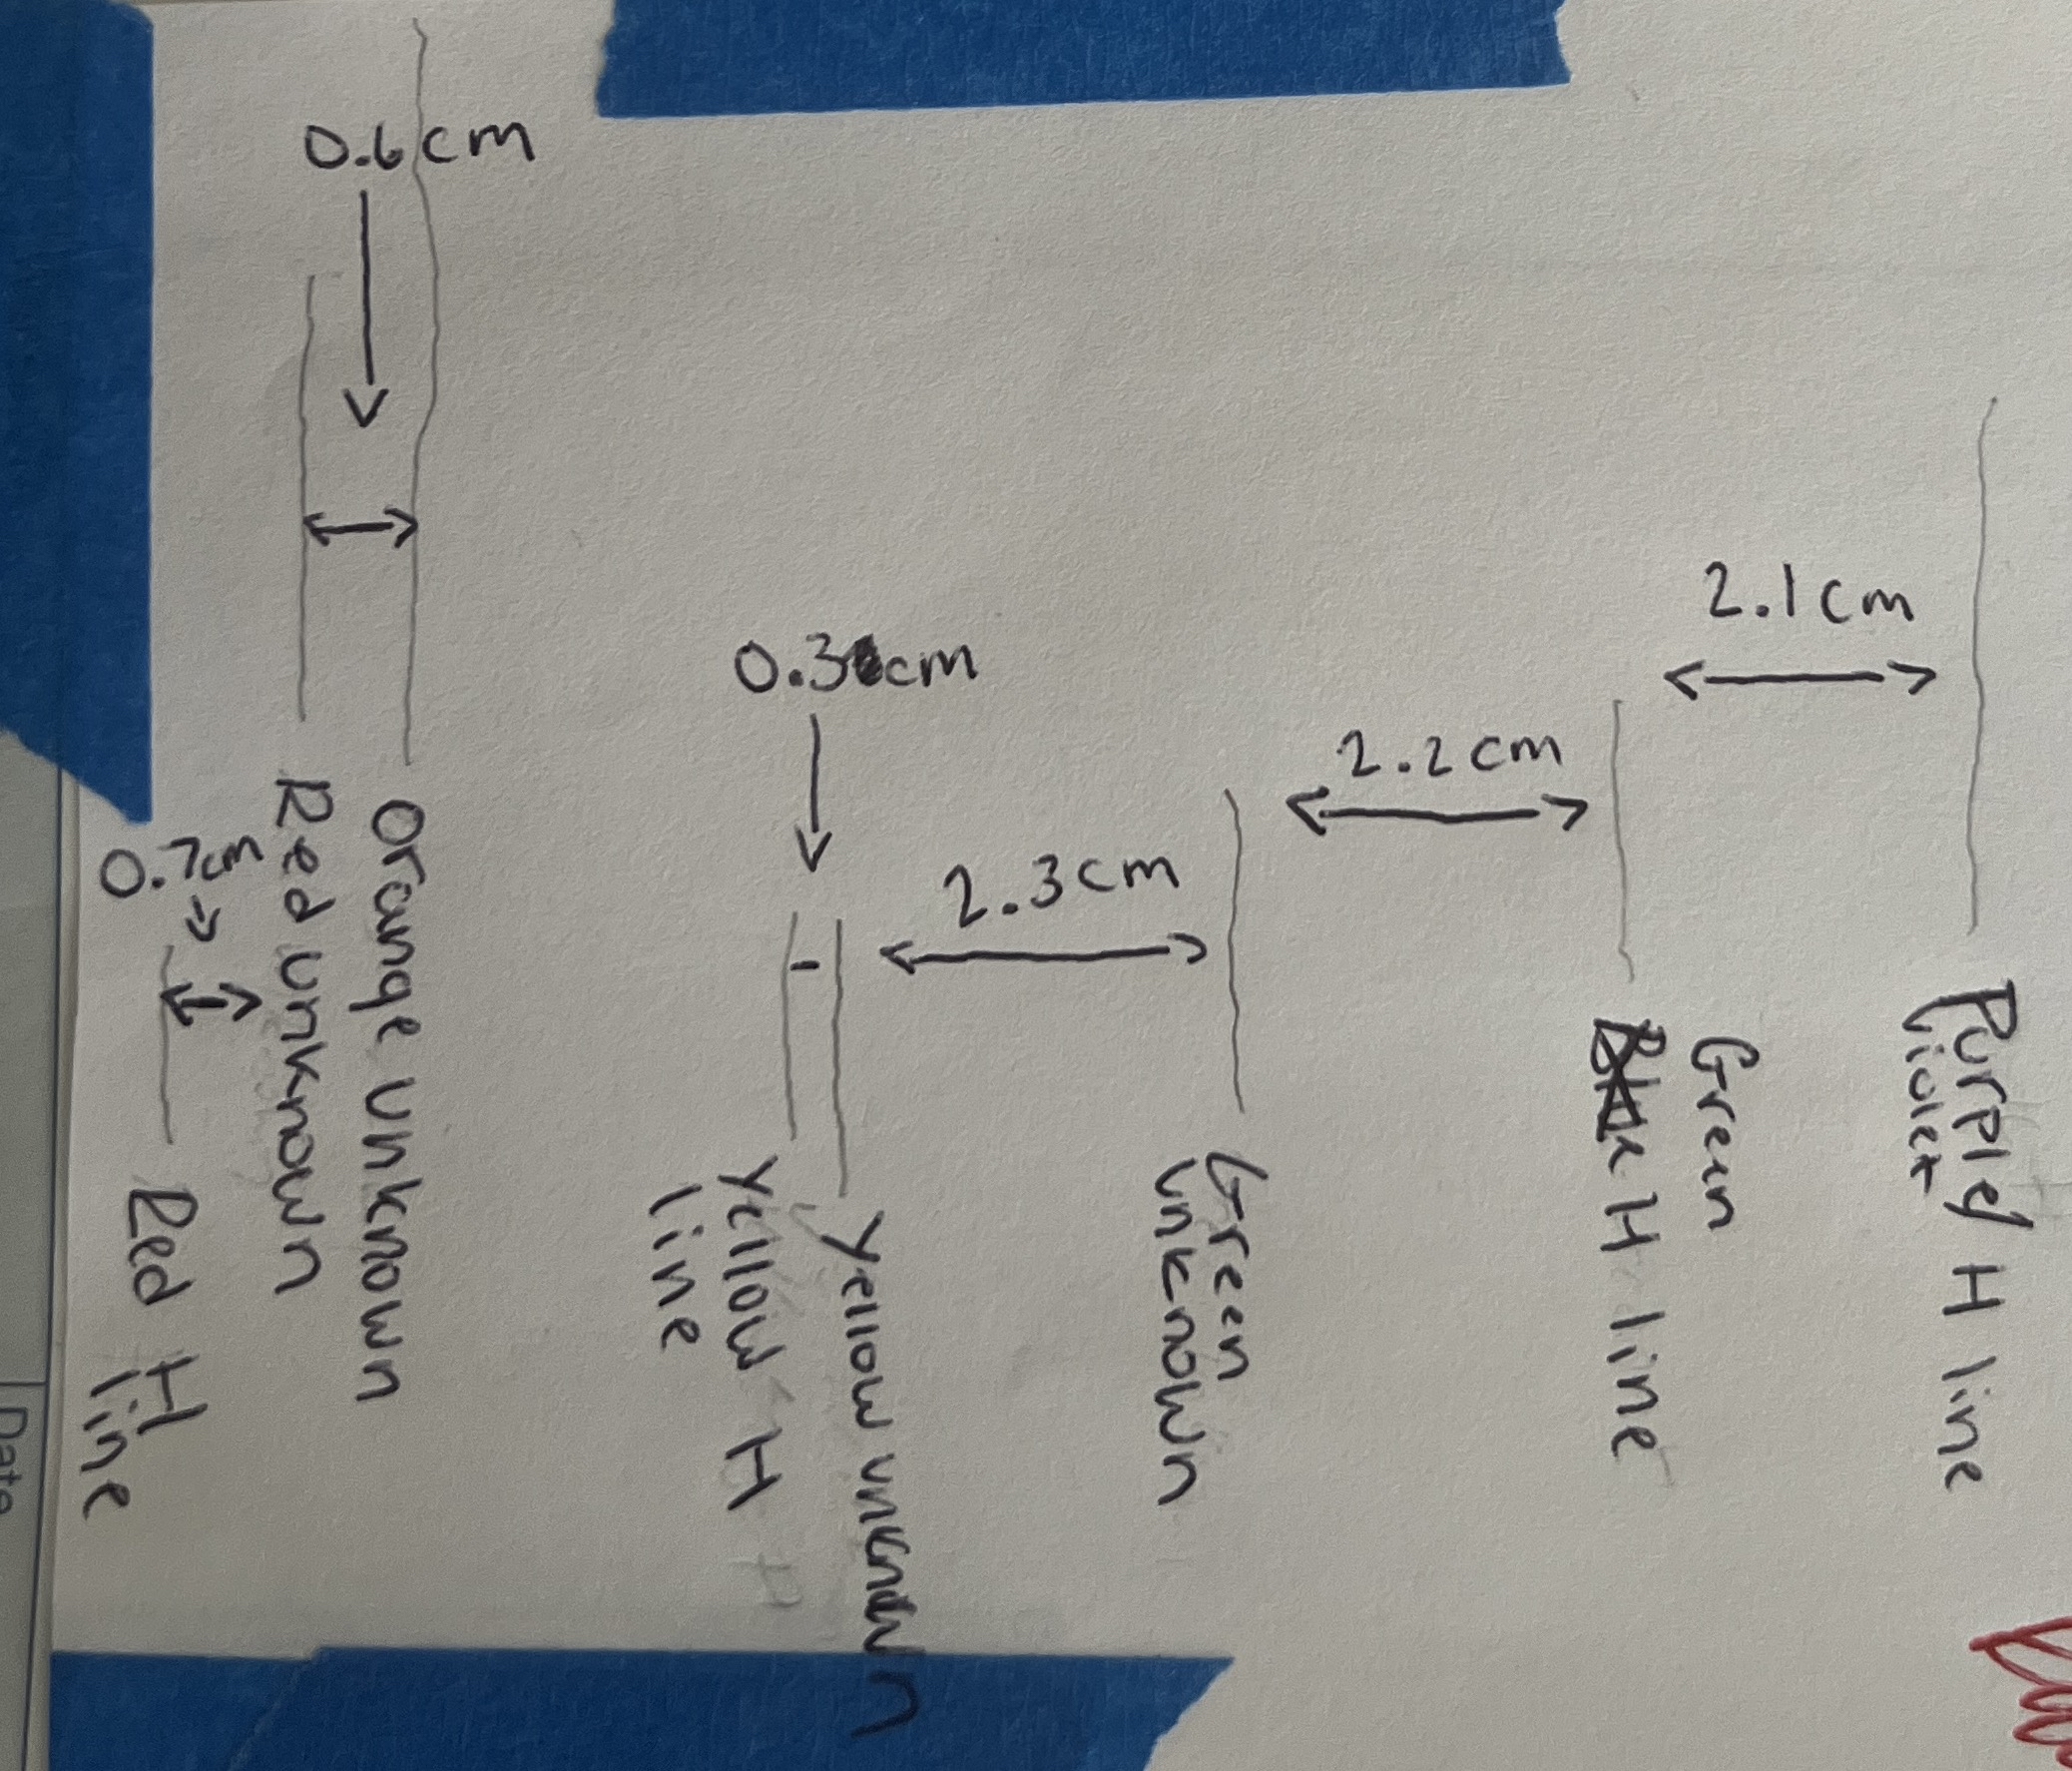 0.6cm
0.3cm
2.1cm
2.2cm
2.3cm
0.7cm
Orange unknown
Red unknown
Red H
line
Yellow unknown
Yellow H
line
Green
unknown
Green
H line
Purple H line
violet
Date